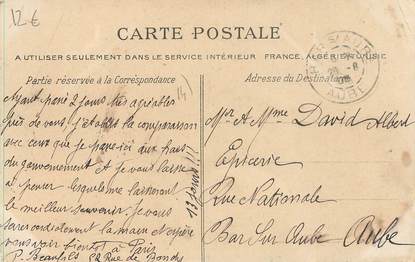 12 €
CARTE POSTALE
A UTILISER SEULEMENT DANS LE SERVICE INTÉRIEUR FRANCE, ALGÉRIE, TUNISIE
Partie réservée à la Correspondance
Ayant passé 2 jours très agréables
près de vous, j'établis la comparaison
avec ceux que je passe ici aux frais
du gouvernement et je vous laisse
à penser lesquels me laisseront
le meilleur souvenir. je vous
serre cordialement la main et espère
vous revoir bientôt à Paris
P. 82 Rue de Bondy
13 jours !!!
Adresse du Destinataire
Mr & Mme David Albert
Epicerie
Rue Nationale
Bar Sur Aube Aube